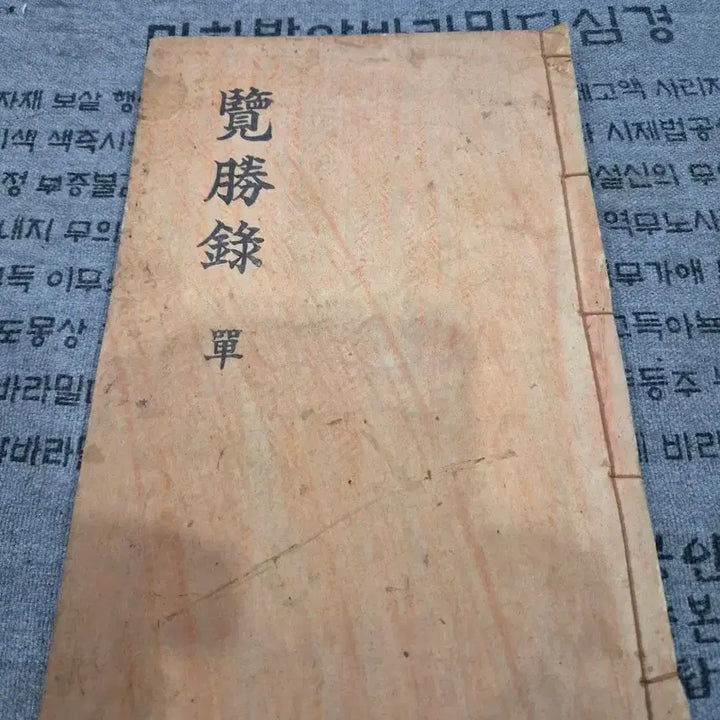 심경
자재 보살 행
고액 사리자
색 색즉시
시재법공
정 부증불
설신의 무
내지 무의
역무노사
득 이무
무가애
도몽상
고득아뇩
바라밀
등주
바라밀
바라
본
覽勝錄
單